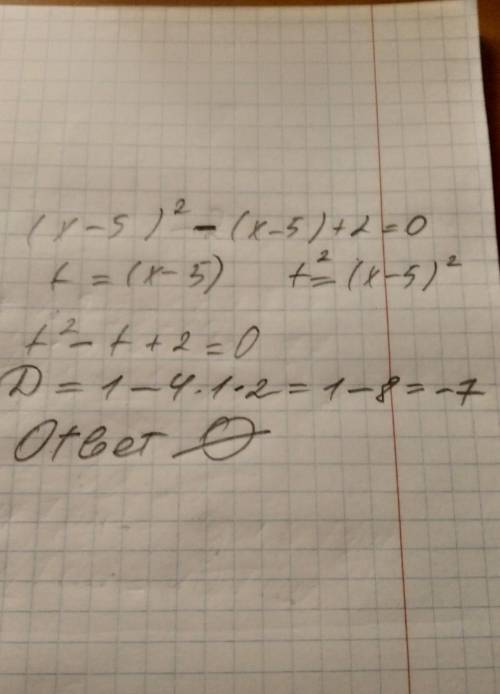 (x-5)² - (x-5)+2=0
t = (x-5) t²=(x-5)²
t² - t + 2 = 0
D = 1 - 4·1·2 = 1 - 8 = -7
Ответ ∅